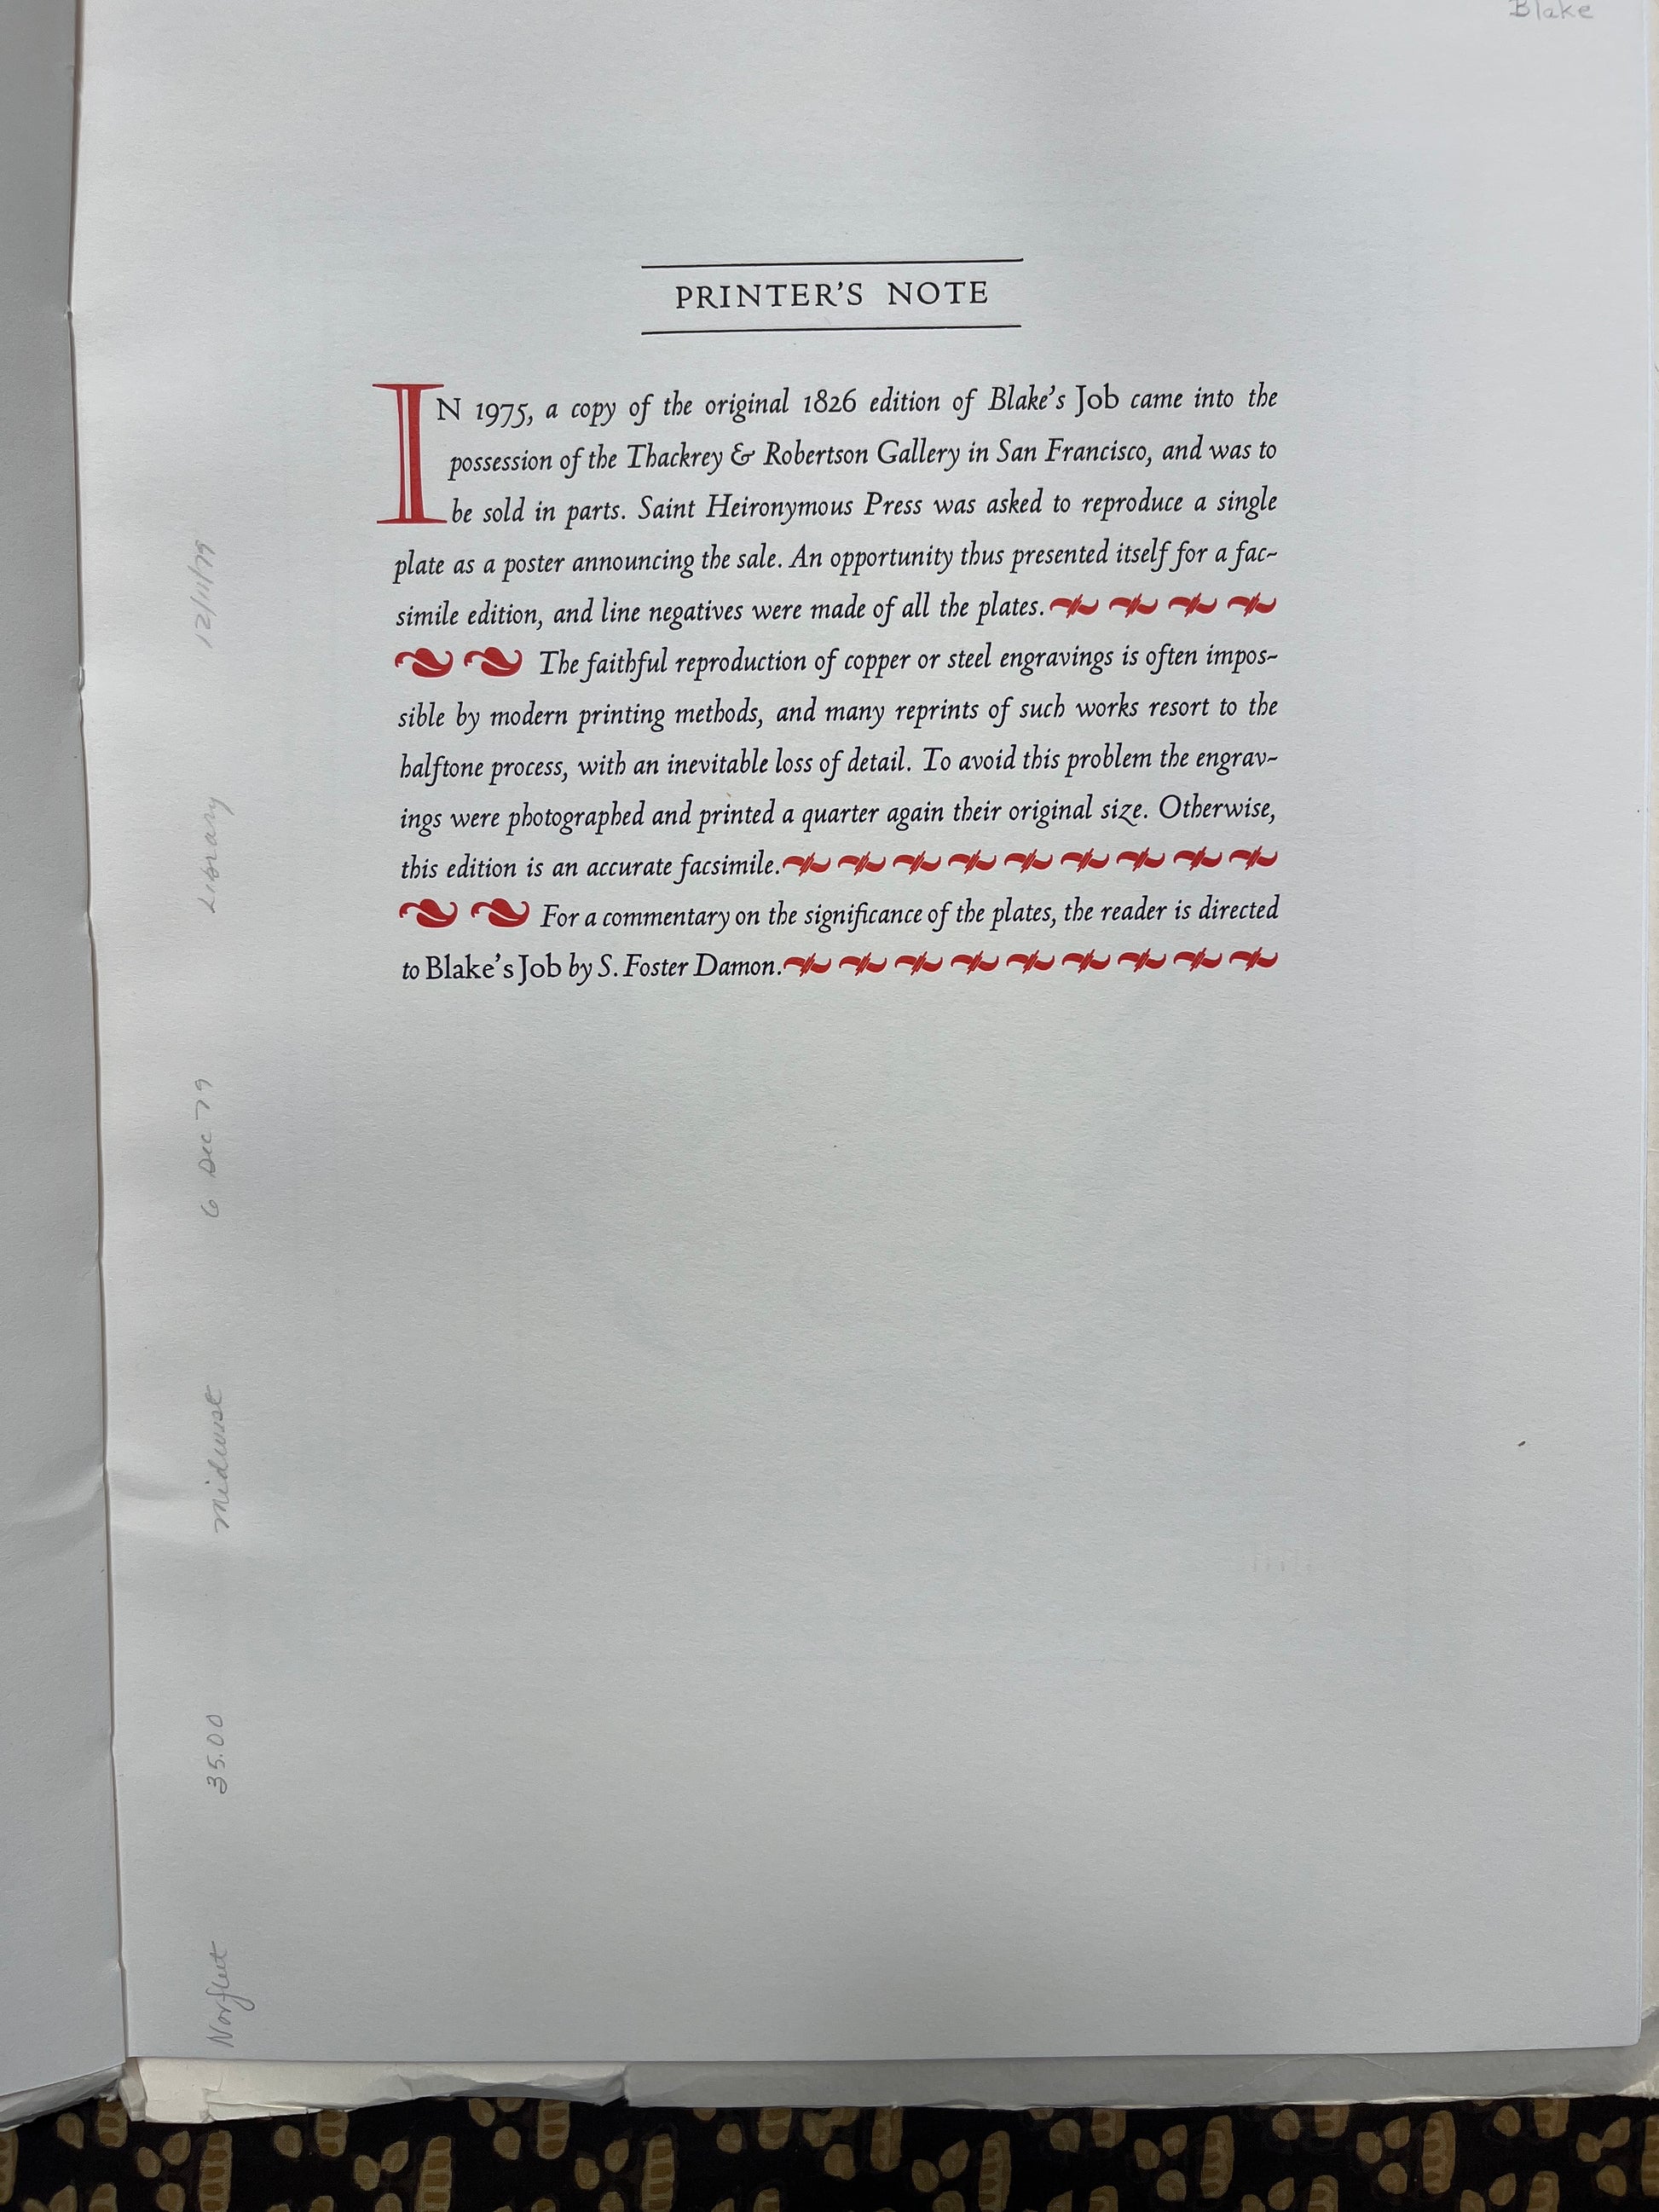 Blake
PRINTER'S NOTE
IN 1975, a copy of the original 1826 edition of Blake's Job came into the
possession of the Thackrey & Robertson Gallery in San Francisco, and was to
be sold in parts. Saint Heironymous Press was asked to reproduce a single
plate as a poster announcing the sale. An opportunity thus presented itself for a fac-
simile edition, and line negatives were made of all the plates.
The faithful reproduction of copper or steel engravings is often impos-
sible by modern printing methods, and many reprints of such works resort to the
halftone process, with an inevitable loss of detail. To avoid this problem the engrav-
ings were photographed and printed a quarter again their original size. Otherwise,
this edition is an accurate facsimile.
For a commentary on the significance of the plates, the reader is directed
to Blake's Job by S. Foster Damon.
Norfleet 35.00 Midwest 6 Dec 79 Library 12/11/79